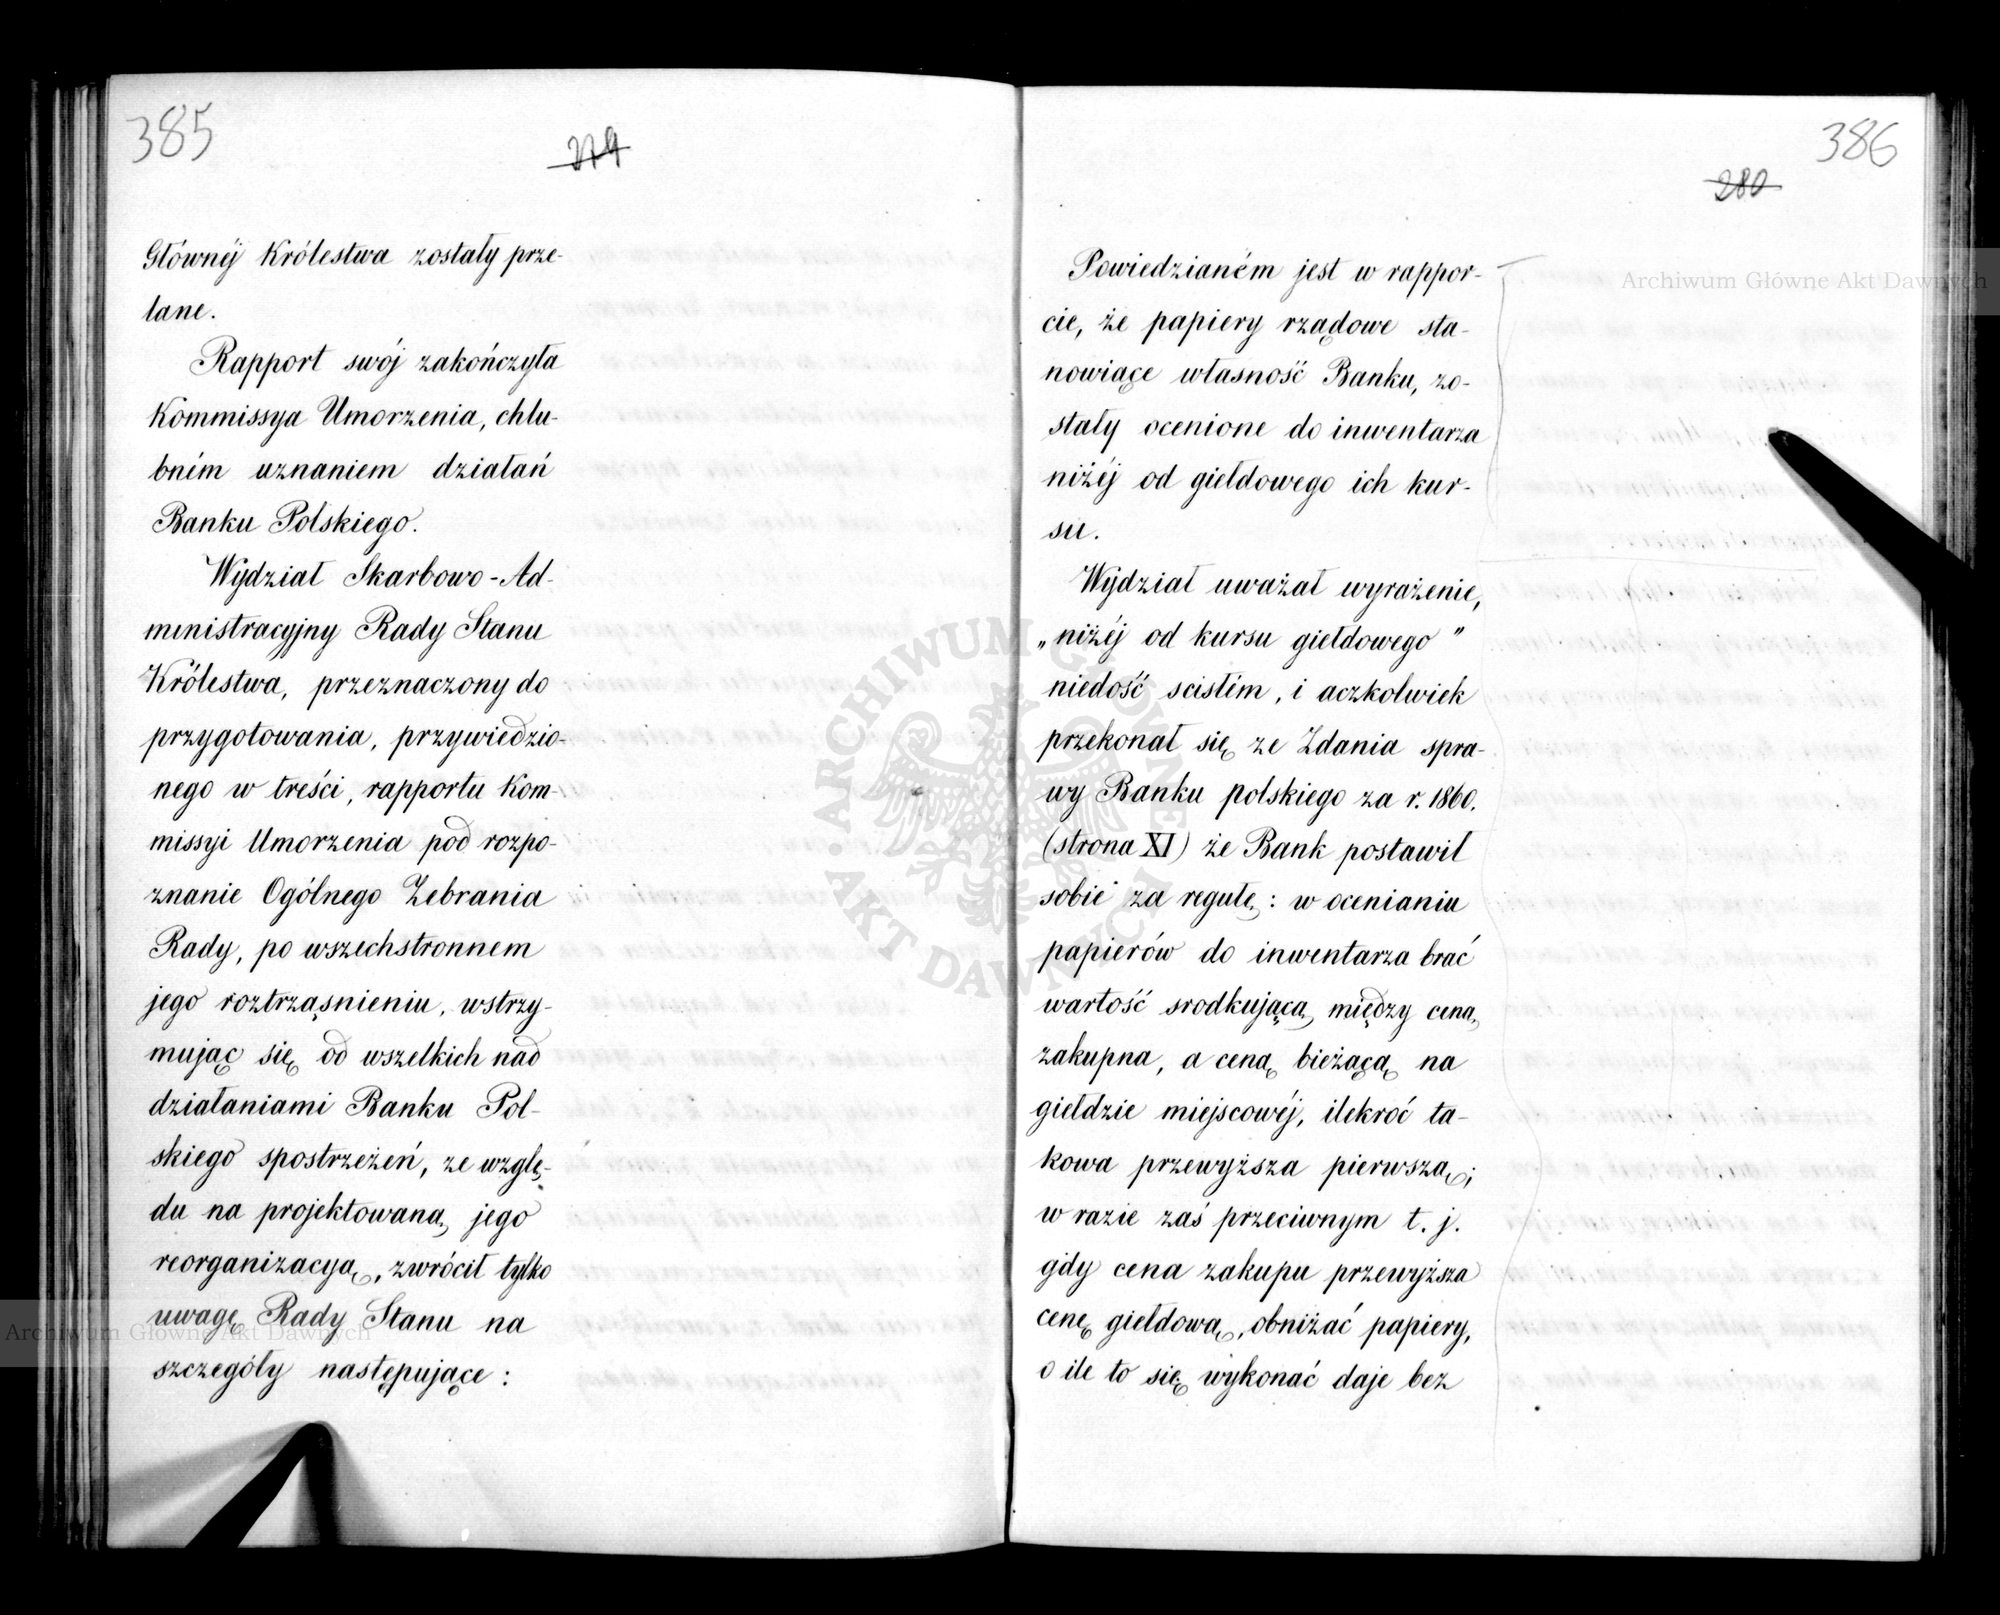 385
279
Głównéj Królestwa zostały prze-
lane.
Rapport swój zakończyła
Kommissya Umorzenia, chlu-
bném uznaniem działań
Banku Polskiego.
Wydział Skarbowo-Ad-
ministracyjny Rady Stanu
Królestwa, przeznaczony do
przygotowania, przywiedzio-
nego w treści, rapportu Kom-
missyi Umorzenia pod rozpo-
znanie Ogólnego Zebrania
Rady, po wszechstronnem
jego roztrząśnieniu, wstrzy-
mując się od wszelkich nad
działaniami Banku Pol-
skiego spostrzeżeń, ze wzglę-
du na projektowaną jego
reorganizacyą, zwrócił tylko
uwagę Rady Stanu na
szczegóły następujące:
386
280
Powiedzianém jest w rappor-
cie, że papiery rządowe sta-
nowiące własność Banku, zo-
stały ocenione do inwentarza
niżéj od giełdowego ich kur-
su.
Wydział uważał wyrażenie,
„niżéj od kursu giełdowego"
niedość scisłém, i aczkolwiek
przekonał się ze Zdania spra-
wy Banku polskiego za r. 1860.
(strona XI) że Bank postawił
sobie za regułę: w ocenianiu
papierów do inwentarza brać
wartość srodkującą między ceną
zakupna, a ceną bieżącą na
giełdzie miejscowéj, ilekroć ta-
kowa przewyższa pierwszą;
w razie zaś przeciwnym t. j.
gdy cena zakupu przewyższa
cenę giełdową, obniżać papiery,
o ile to się wykonać daje bez
Archiwum Główne Akt Dawnych
Archiwum Główne Akt Dawnych
ARCHIWUM GŁÓWNE · AKT DAWNYCH ·